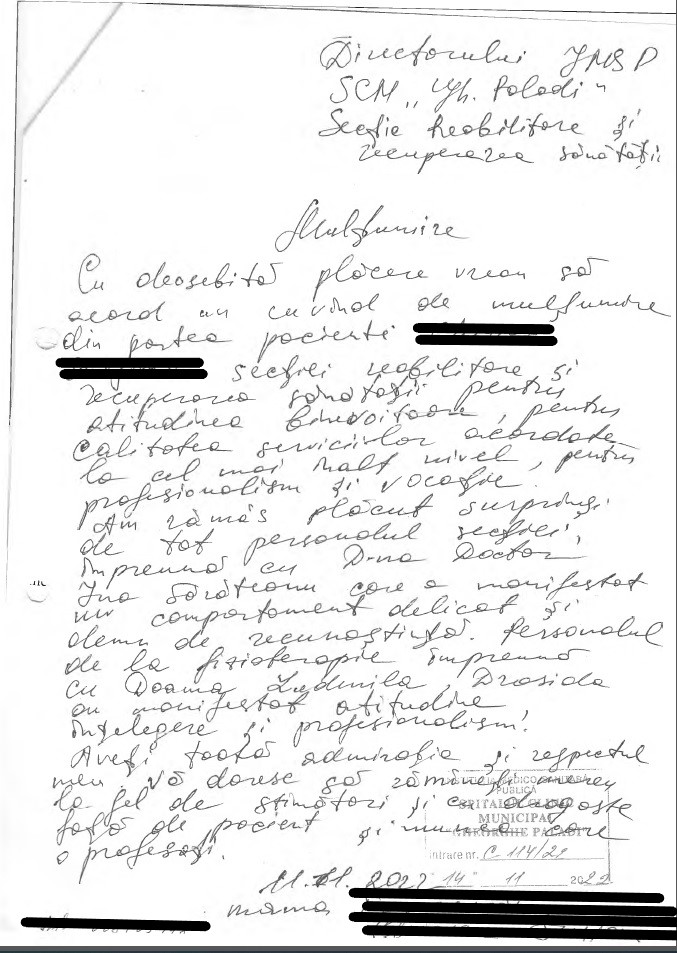 Directorului IMSP
SCM „Gh. Paladi"
Secție Reabilitare și
recuperarea sănătății
Mulțumire
Cu deosebită plăcere vrem să
acord un cuvînd de mulțumire
din partea pacienti
secției reabilitare și
recuperarea sănătății pentru
atitudinea binevoitoare, pentru
calitatea serviciilor acordate
la cel mai înalt nivel, pentru
profesionalism și vocație.
Am rămas plăcut surprinși
de tot personalul secției,
împreună cu D-na Doctor
Ina Sărăteanu care a manifestat
un comportament delicat și
demn de recunoștință. Personalul
de la fizioterapie împreună
cu Doamna Ludmila
au manifestat atitudine
înțelegere și profesionalism!
Aveți toată admirația și respectul
meu. Vă doresc să rămîneți mereu
la fel de stimători și cu dragoste
față de pacient și munca care
o profesați.
INSTITUȚIA MEDICO-SANITARĂ
PUBLICĂ
SPITALUL CLINIC
MUNICIPAL
"GHEORGHE PALADI"
Intrare nr. C 114/22
14 11 2022
11.11.2022
mama